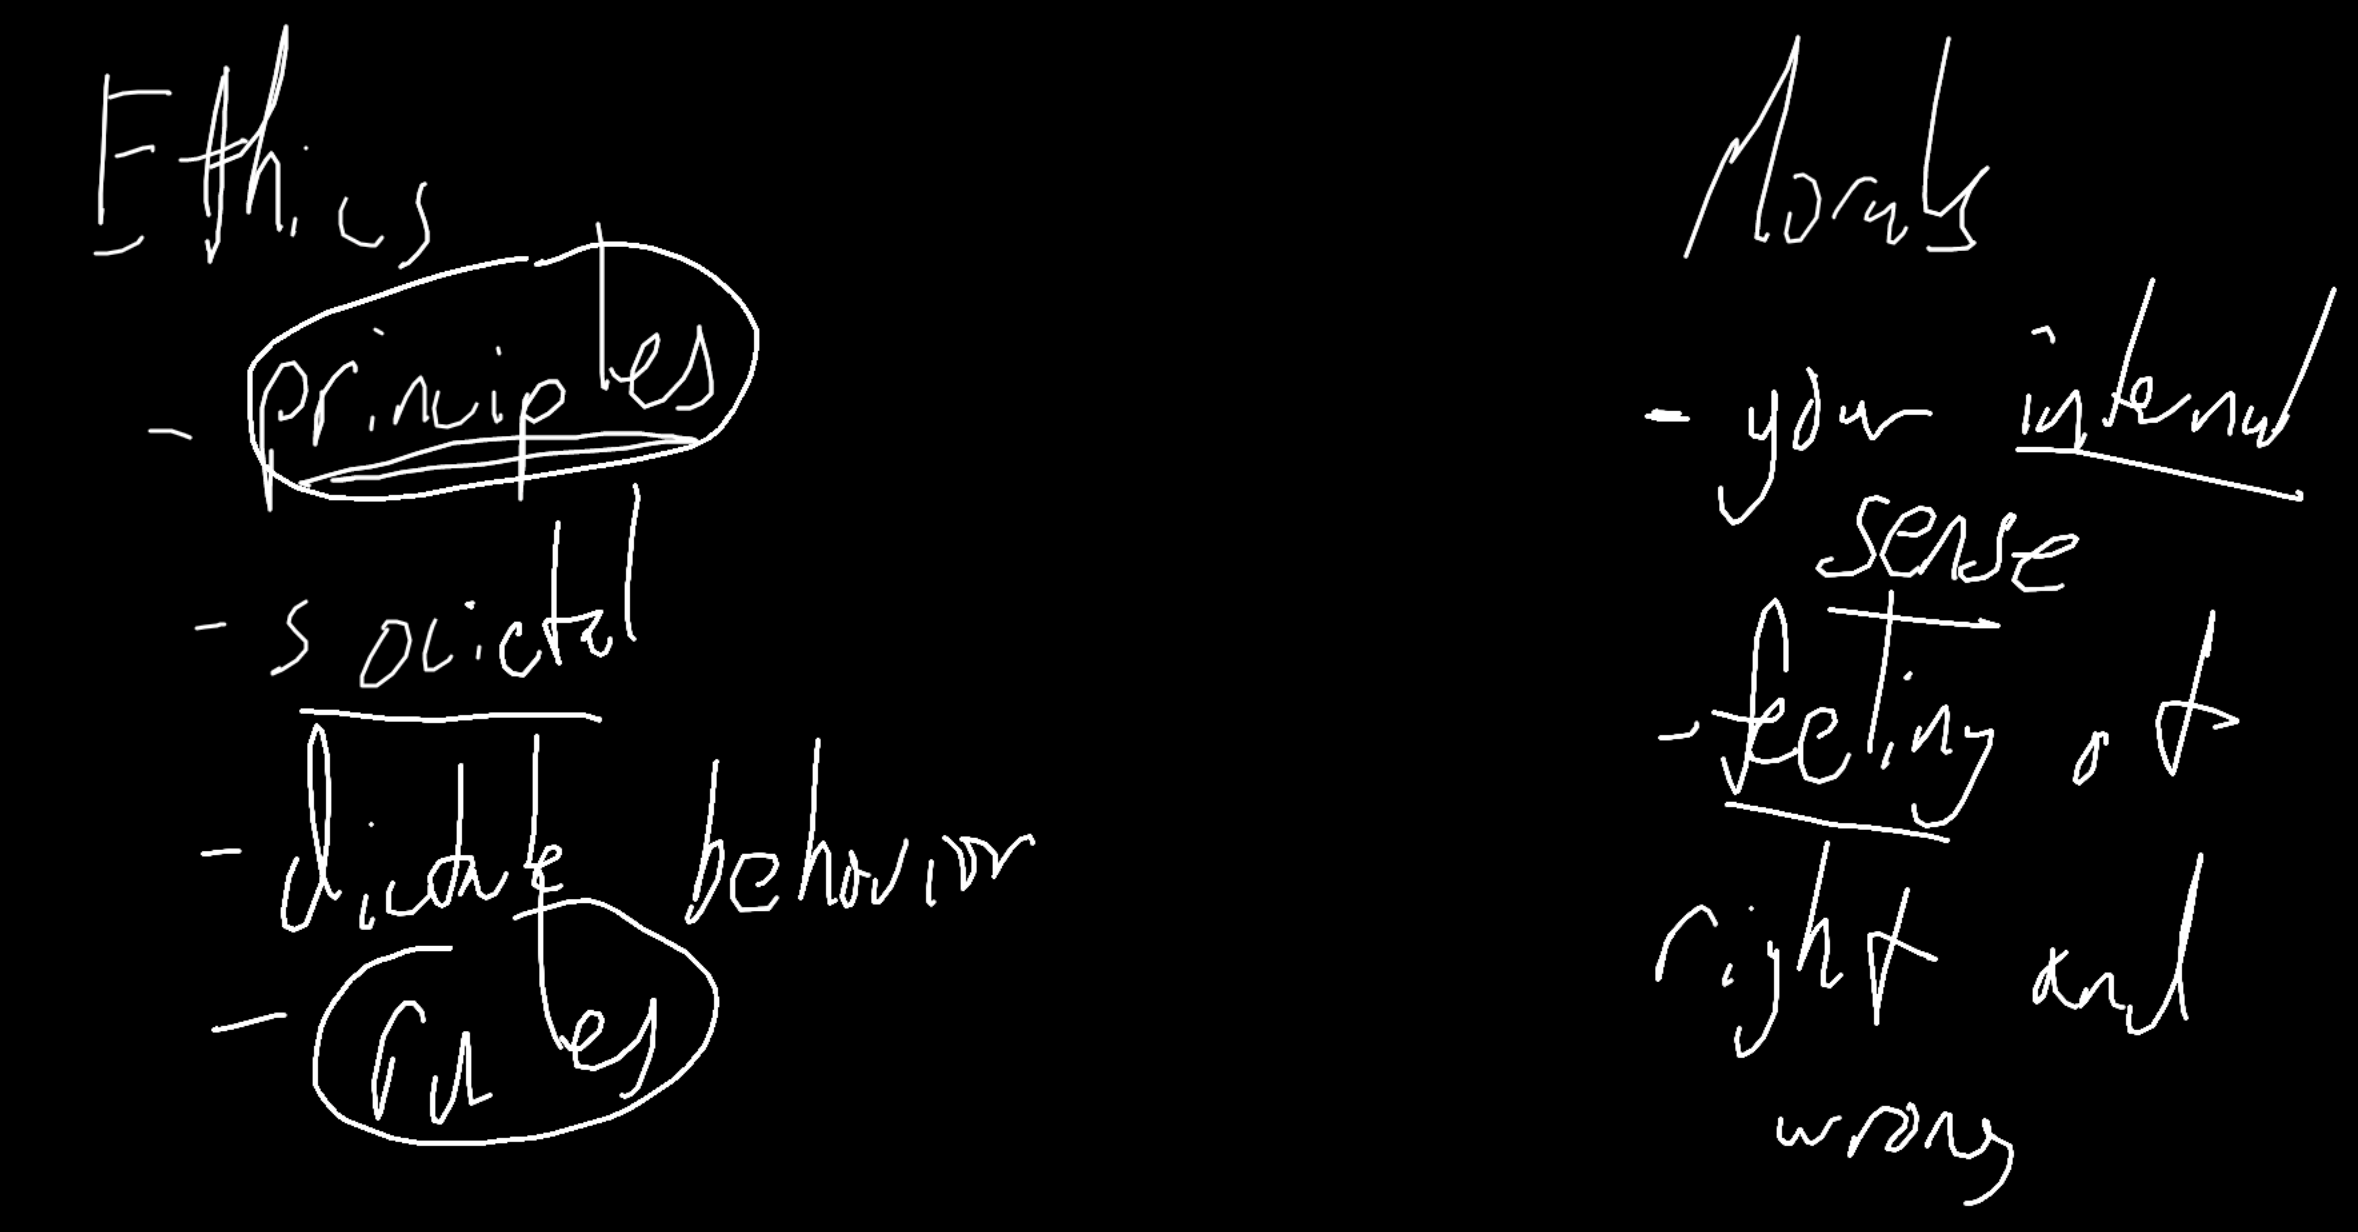 Ethics
- principles
- societal
- dictate behavior
- rules
Morals
- your internal
sense
- feeling of
right and
wrong